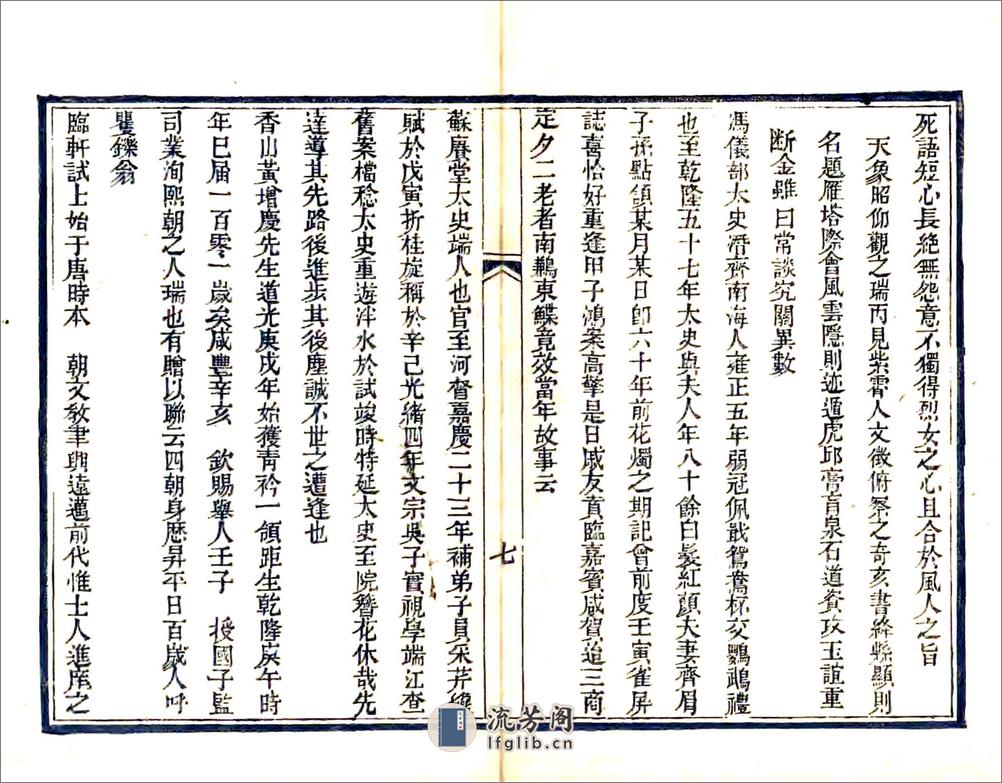 死語短心長絶無怨意不獨得烈女之心且合於風人之旨
天象昭仰觀之瑞丙見紫霄人文徵俯察之奇亥書絳縣顯則
名題雁塔際會風雲隱則迹遁虎邱膏肓泉石道資攻玉誼重
断金雖曰常談究關異數
馮儀部太史潛齋南海人雍正五年弱冠佩戢鴛鴦杯交鸚鵡禮
也至乾隆五十七年太史與夫人年八十餘白髮紅顔夫妻齊眉
子孫點頷某月某日卽六十年前花燭之期記曾前度壬寅雀屏
誌喜恰好重逢甲子鴻案高擎是日戚友賁臨嘉賓咸賀迨三商
定夕二老者南鶼東鰈竟效當年故事云
七
蘇賡堂太史端人也官至河督嘉慶二十三年補弟子員采芹纔
賦於戊寅折桂旋稱於辛己光緒四年文宗吳子實視學端江查
舊案檔稔太史重遊泮水於試竣時特延太史至院簪花休哉先
達導其先路後進步其後塵誠不世之遭逢也
香山黃增慶先生道光庚戌年始獲青衿一領距生乾隆庚午時
年巳屆一百零一歲矣咸豐辛亥 欽賜舉人壬子 授國子監
司業洵熙朝之人瑞也有贈以聯云四朝身歷昇平日百歲人呼
矍鑠翁
臨軒試士始于唐時本 朝文敎聿興遠邁前代惟士人進庠之
流芳阁
lfglib.cn